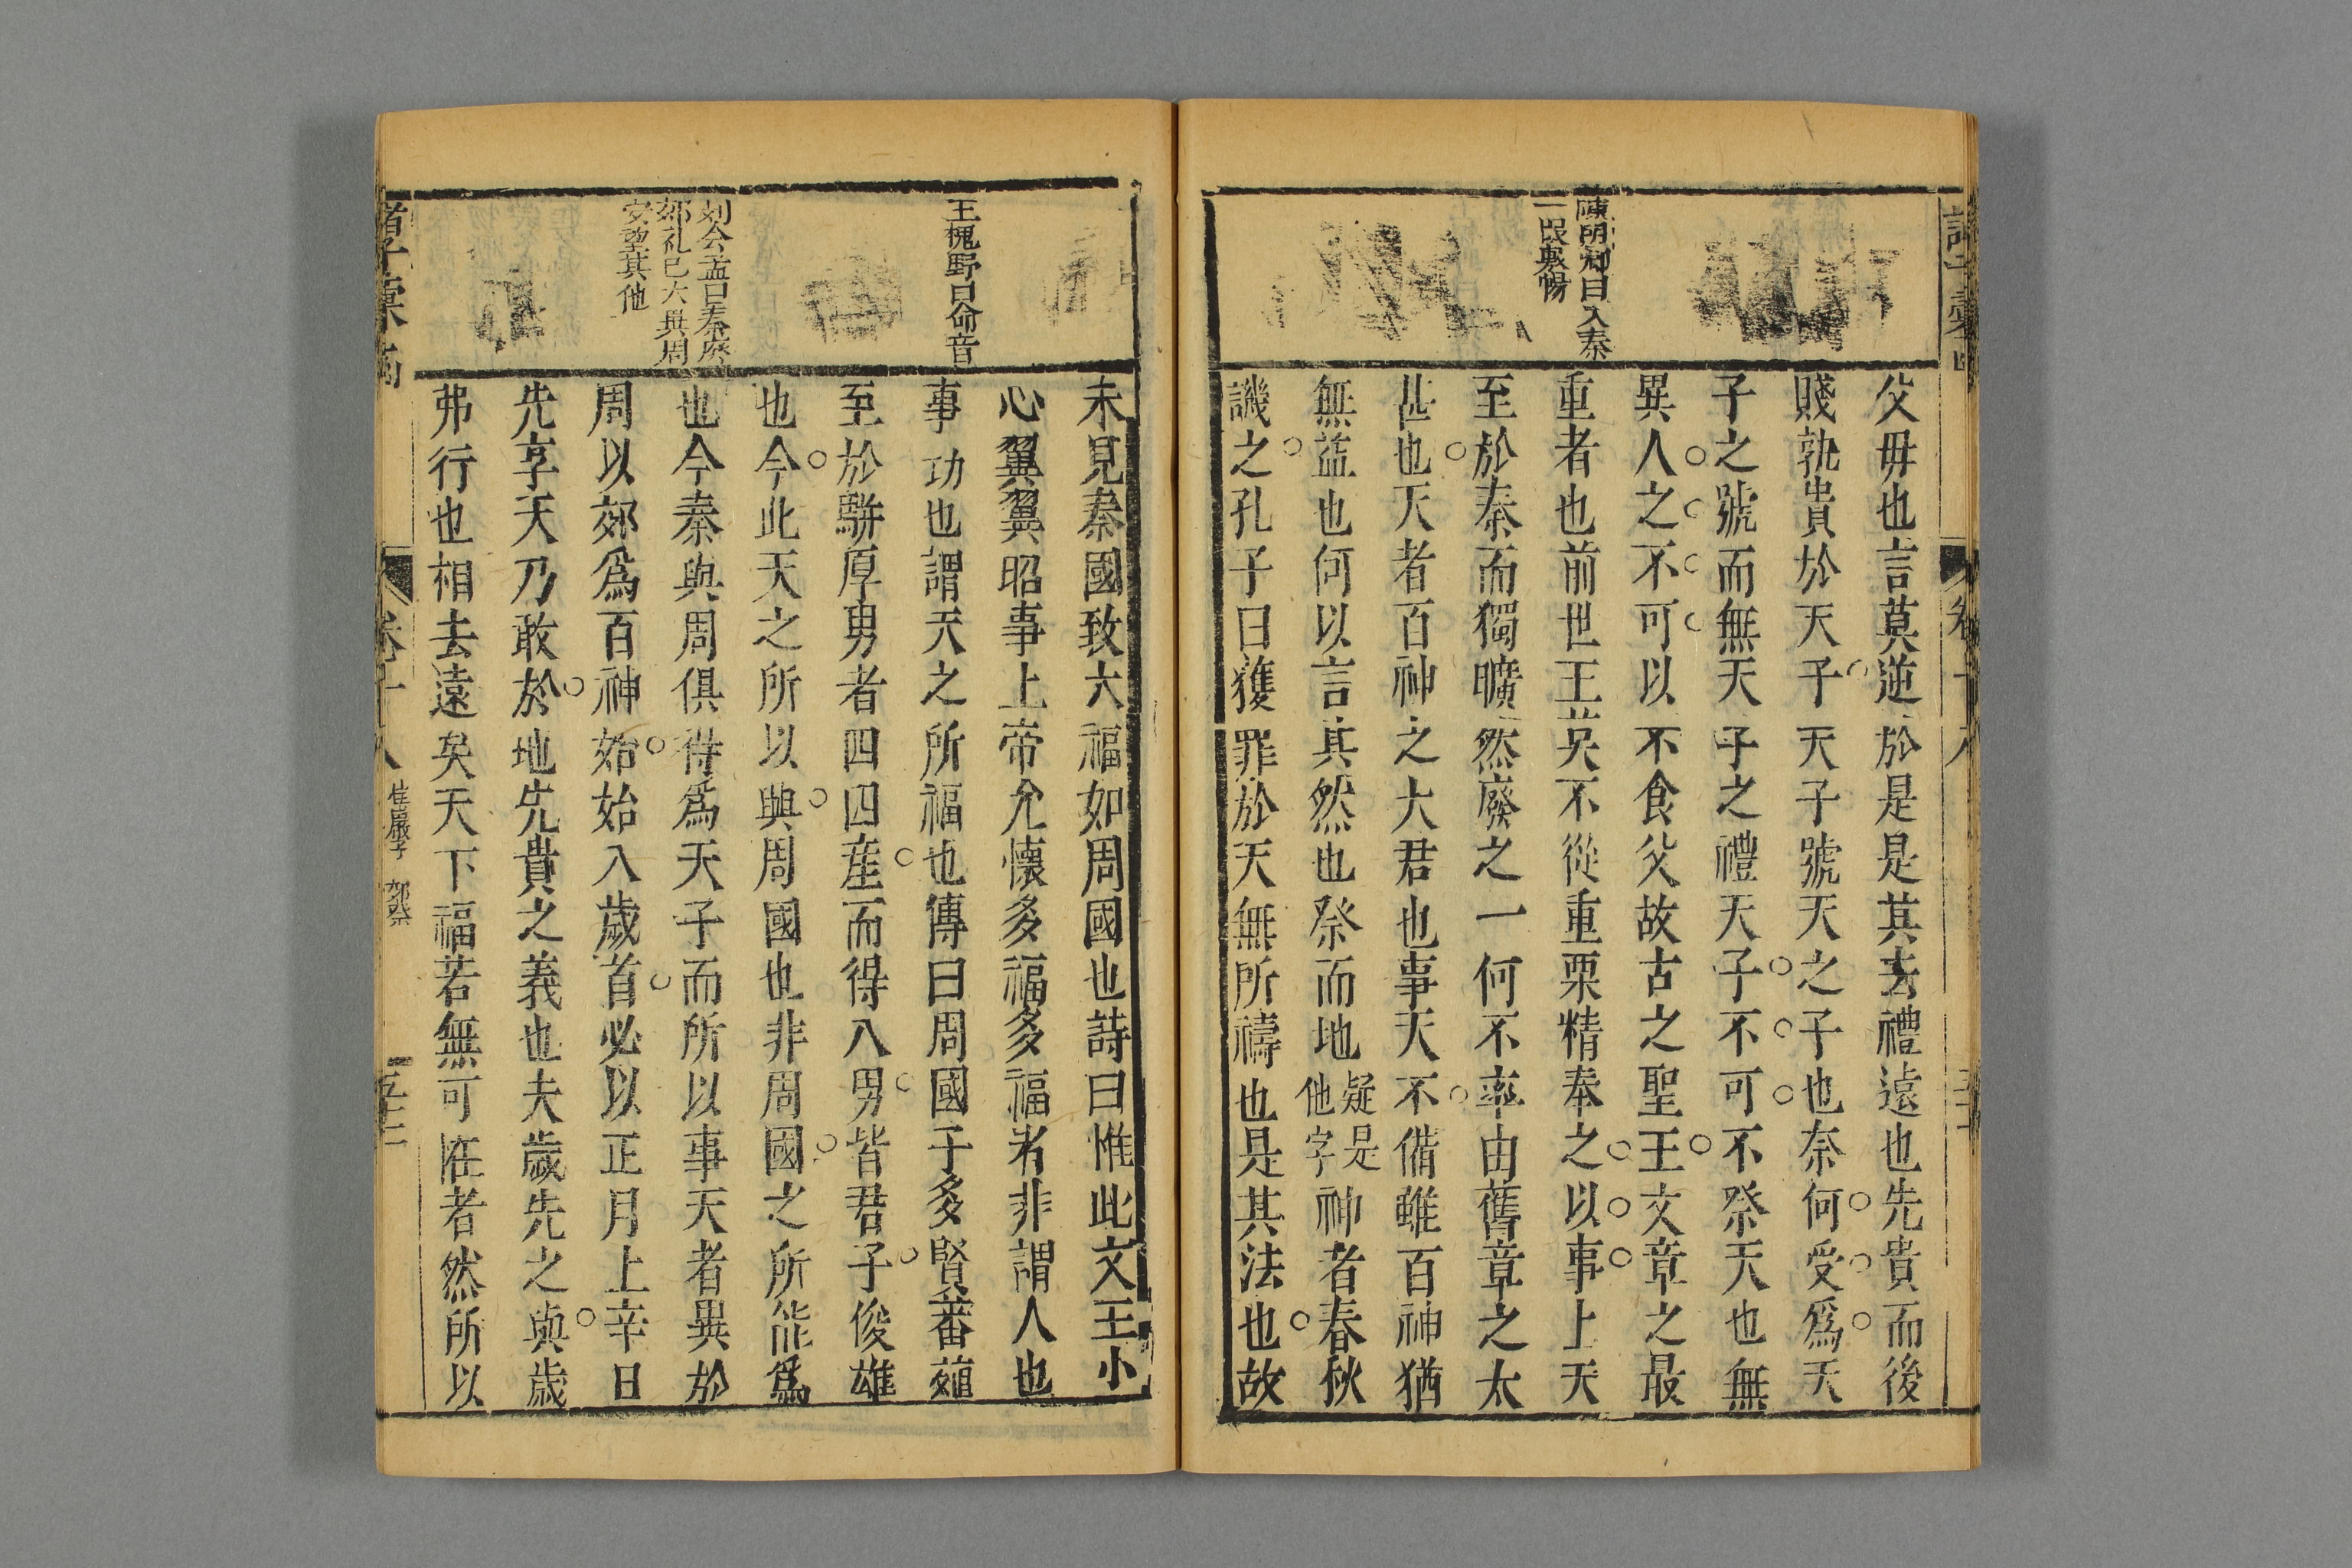 父毋也言莫逆於是是其去禮遠也先貴而後
賤孰貴於天子天子號天之子也奈何受爲天
子之號而無天子之禮天子不可不祭天也無
異人之不可以不食父故古之聖王文章之最
重者也前世王莫不從重栗精奉之以事上天
至於秦而獨曠然廢之一何不率由舊章之太
甚也天者百神之大君也事天不備雖百神猶
無益也何以言其然也祭而地疑是他字神者春秋
譏之孔子曰獲罪於天無所禱也是其法也故
陳明卿曰入秦
一段更暢
未見秦國致大福如周國也詩曰惟此文王小
心翼翼昭事上帝允懷多福多福者非謂人也
事功也謂天之所福也傳曰周國子多賢蕃蘊
至於駢厚男者四四產而得八男皆君子俊雄
也今此天之所以與周國也非周國之所能爲
也今秦與周俱得爲天子而所以事天者異於
周以郊爲百神始始入歲首必以正月上辛日
先享天乃敢於地先貴之義也夫歲先之與歲
弗行也相去遠矣天下福若無可在者然所以
王槐野曰命音
刘公孟曰秦廢
郊礼已大異周
安望其他
卷十八
桂巖子
郊祭
五十二